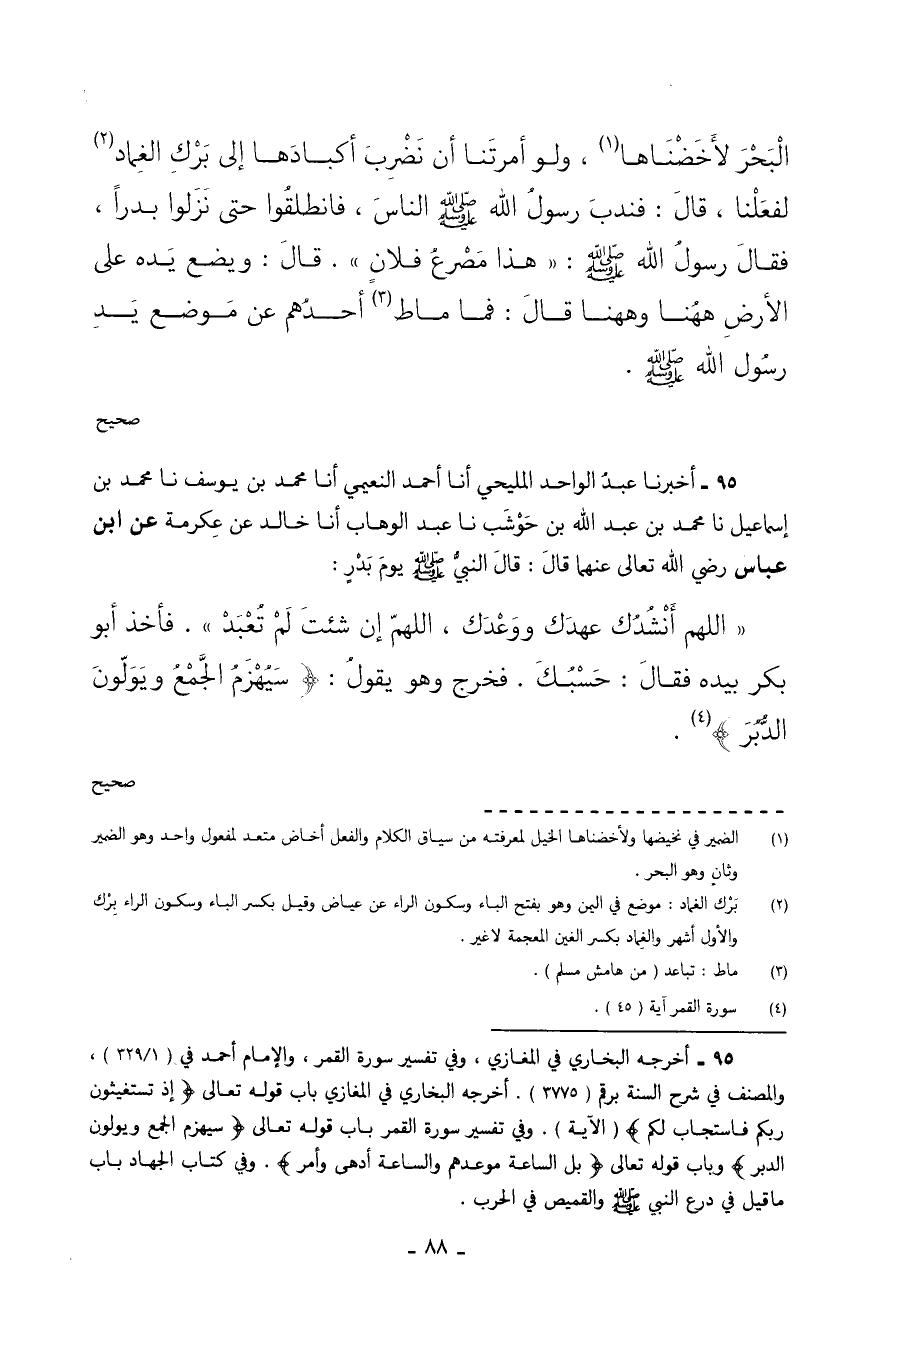 الْبَحْرَ لأَخَضْنَاها(١) ، ولو أمرتَنا أن نَضْرِبَ أكبادَها إلى بَرْكِ الغِماد(٢)
لفعَلْنا ، قالَ : فندبَ رسولُ الله ﷺ الناسَ ، فانطلقُوا حتى نَزَلوا بدراً ،
فقالَ رسولُ الله ﷺ : « هذا مَصْرعُ فلانٍ » . قالَ : ويضع يَده على
الأرضِ ههُنا وههنا قالَ : فما ماط(٣) أحدُهم عن مَوضع يَدِ
رسُول الله ﷺ .
صحيح
٩٥ ـ أخبرنا عبدُ الواحد المليحي أنا أحمد النعيمي أنا محمد بن يوسف نا محمد بن
إسماعيل نا محمد بن عبد الله بن حَوْشَب نا عبد الوهاب أنا خالد عن عِكرمة عن ابن
عباس رضي الله تعالى عنهما قالَ : قالَ النبيُّ ﷺ يومَ بَدْرٍ :
« اللهم أَنْشُدُك عهدَك ووَعْدَك ، اللهمّ إن شئتَ لَمْ تُعْبَدْ » . فأخذ أبو
بكر بيده فقالَ : حَسْبُكَ . فخرج وهو يقولُ : ﴿ سَيُهْزَمُ الجَمْعُ ويَوَلّونَ
الدُّبُرَ ﴾(٤) .
صحيح
(١) الضمير في نخيضها ولأخضناها الخيل لمعرفته من سياق الكلام والفعل أخاض متعد لمفعول واحد وهو الضمير
وثانٍ وهو البحر .
(٢) بَرْك الغماد : موضع في اليمن وهو بفتح الباء وسكون الراء عن عياض وقيل بكسر الباء وسكون الراء بِرْك
والأول أشهر والغماد بكسر الغين المعجمة لاغير .
(٣) ماط : تباعد ( من هامش مسلم ) .
(٤) سورة القمر آية ( ٤٥ ) .
٩٥ ـ أخرجه البخاري في المغازي ، وفي تفسير سورة القمر ، والإمام أحمد في ( ٣٢٩/١ ) ،
والمصنف في شرح السنة برقم ( ٣٧٧٥ ) . أخرجه البخاري في المغازي باب قوله تعالى ﴿ إذ تستغيثون
ربكم فاستجاب لكم ﴾ ( الآية ) . وفي تفسير سورة القمر باب قوله تعالى ﴿ سيهزم الجمع ويولون
الدبر ﴾ وباب قوله تعالى ﴿ بل الساعة موعدهم والساعة أدهى وأمر ﴾ . وفي كتاب الجهاد باب
ماقيل في درع النبي ﷺ والقميص في الحرب .
ـ ٨٨ ـ